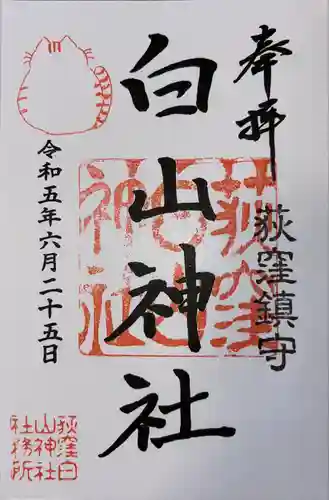 奉拝
荻窪鎮守
白山神社
令和五年六月二十五日
荻窪白山神社
荻窪白
山神社
社務所